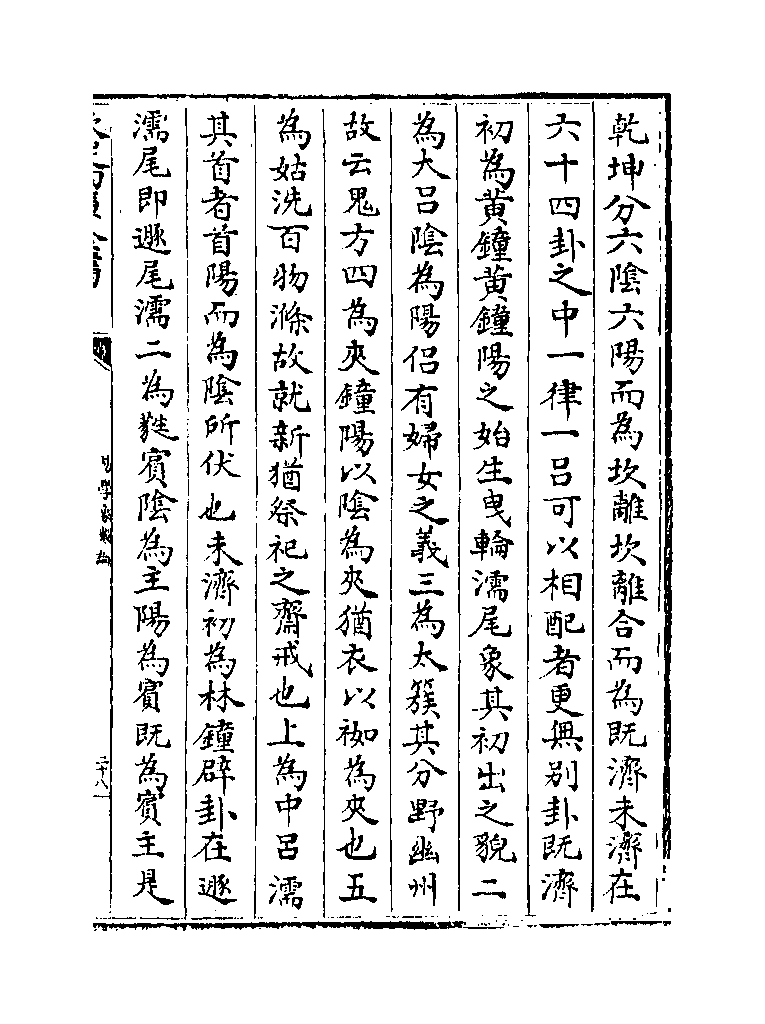 乾坤分六陰六陽而為坎離坎離合而為既濟未濟在
六十四卦之中一律一呂可以相配者更無别卦既濟
初為黄鐘黄鐘陽之始生曳輪濡尾象其初出之貌二
為大呂陰為陽侣有婦女之義三為太簇其分野幽州
故云鬼方四為夾鐘陽以陰為夾猶衣以袽為夾也五
為姑洗百物滌故就新猶祭祀之齋戒也上為中呂濡
其首者首陽而為陰所伏也未濟初為林鐘辟卦在遯
濡尾即遯尾濡二為蕤賓陰為主陽為賓既為賓主是
易學象數論
二十八